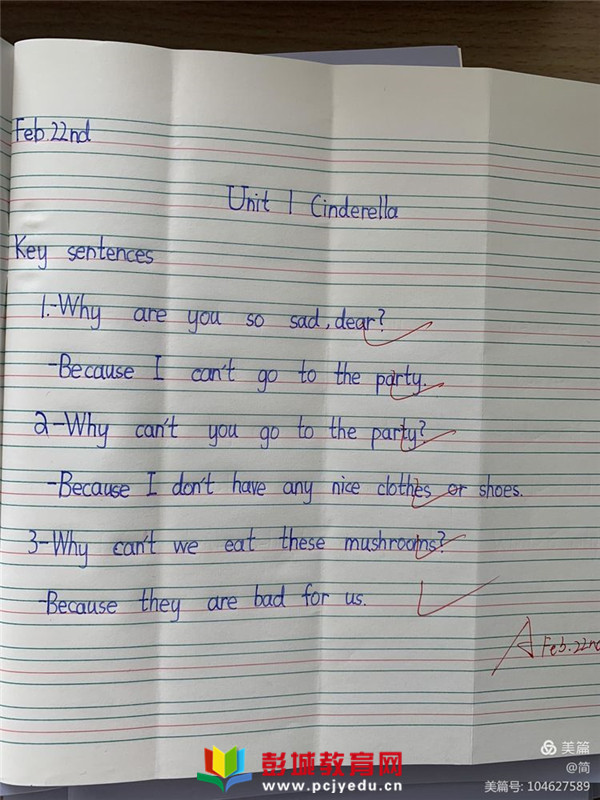 Feb.22nd
Unit 1 Cinderella
Key sentences
1.-Why are you so sad, dear?
-Because I can't go to the party.
2-Why can't you go to the party?
-Because I don't have any nice clothes or shoes.
3-Why can't we eat these mushrooms?
-Because they are bad for us.
A Feb.22nd
美篇
@简
彭城教育网
www.pcjyedu.cn
美篇号: 104627589